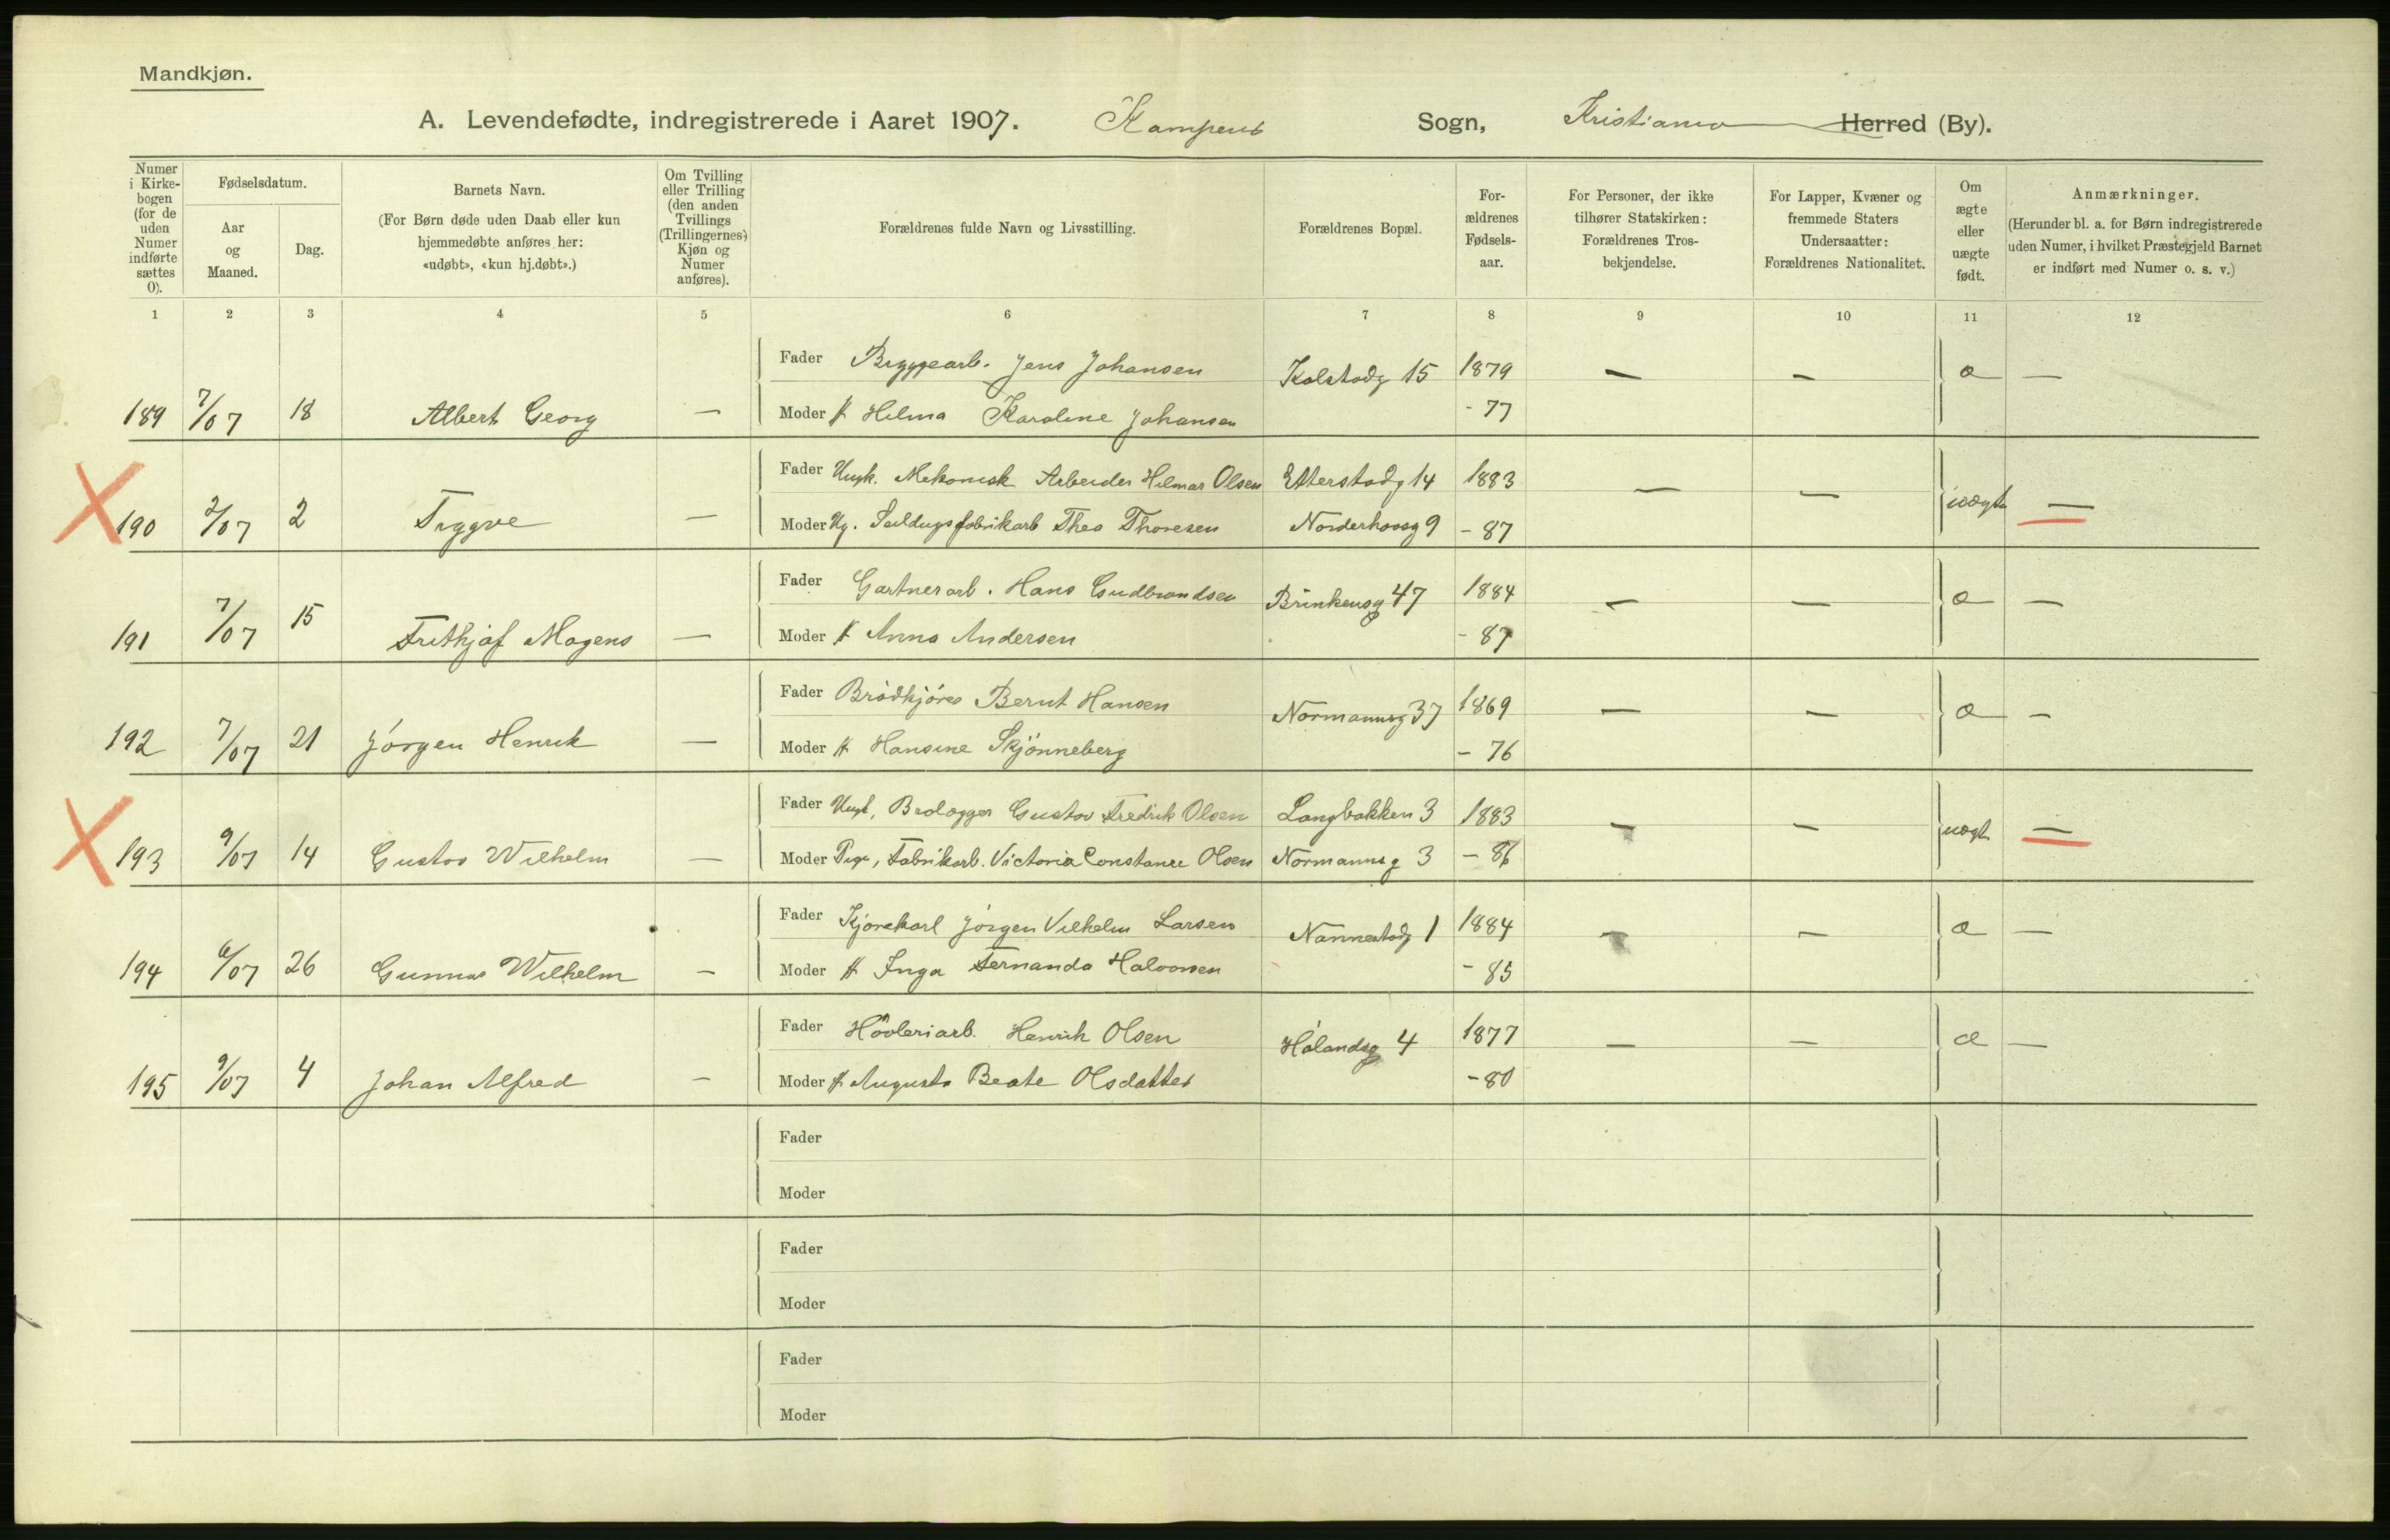 Mandkjøn.
A. Levendefødte, indregistrerede i Aaret 1907. Kampens Sogn, Kristiania Herred (By).
Numer i Kirkebogen (for de uden Numer indførte sættes 0).
Fødselsdatum.
Aar og Maaned.
Dag.
Barnets Navn.
(For Børn døde uden Daab eller kun hjemmedøbte anføres her: «udøbt», «kun hj.døbt».)
Om Tvilling eller Trilling (den anden Tvillings (Trillingernes) Kjøn og Numer anføres).
Forældrenes fulde Navn og Livsstilling.
Forældrenes Bopæl.
Forældrenes Fødselsaar.
For Personer, der ikke tilhører Statskirken: Forældrenes Trosbekjendelse.
For Lapper, Kvæner og fremmede Staters Undersaatter: Forældrenes Nationalitet.
Om ægte eller uægte født.
Anmærkninger.
(Herunder bl. a. for Børn indregistrerede uden Numer, i hvilket Præstegjeld Barnet er indført med Numer o. s. v.)
1 2 3 4 5 6 7 8 9 10 11 12
Fader Bryggearb. Jens Johansen Kolstadg 15 1879 — — æ —
189 7/07 18 Albert Georg — Moder H Helma Karoline Johansen - 77
Fader Ungk. Mekanisk Arbeider Hilmar Olsen Etterstadg 14 1883 — — uægte —
190 2/07 2 Tryggve — Moder Ug. Seildugsfabrikarb Thea Thoresen Norderhovsg 9 - 87
Fader Gartnerarb. Hans Gudbrandsen Brinkensg 47 1884 — — æ —
191 7/07 15 Frithjof Mogens — Moder H Anna Andersen - 87
Fader Brödkjörer Bernt Hansen Normannsg 37 1869 — — æ —
192 7/07 21 Jörgen Henrik — Moder H Hansine Skjönneberg - 76
Fader Ungk, Brolægger Gustav Fredrik Olsen Langbakken 3 1883 — — uægte —
193 9/07 14 Gustav Wilhelm — Moder Pige, Fabrikarb. Victoria Constance Olsen Normannsg 3 - 86
Fader Kjörekarl Jörgen Vilhelm Larsen Nannestadg 1 1884 — — æ —
194 6/07 26 Gunnar Wilhelm — Moder H Inga Fernanda Halvorsen - 85
Fader Hövleriarb. Henrik Olsen Hölandsg 4 1877 — — æ —
195 9/07 4 Johan Alfred — Moder H Augusta Beate Olsdatter - 80
Fader
Moder
Fader
Moder
Fader
Moder